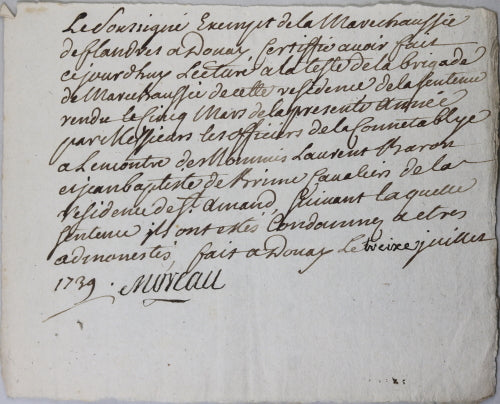 Le Soussigné Exempt de la Marechaussée
de flandres a Douay Certiffie avoir fait
cejourdhuy Lecture a la teste de la brigade
de Marechaussée de cette residence de la sentence
rendue le Cinq Mars de la presente Année
par Messieurs les officiers de la Connetablye
a Lencontre de Nommés Laurent Baron
et jean baptiste de Brime Cavaliers de la
residence de St. amand, suivant laquelle
sentence ils ont estés Condamnez a etres
admonestés, fait a Douay le treize juillet
1739. Moreau